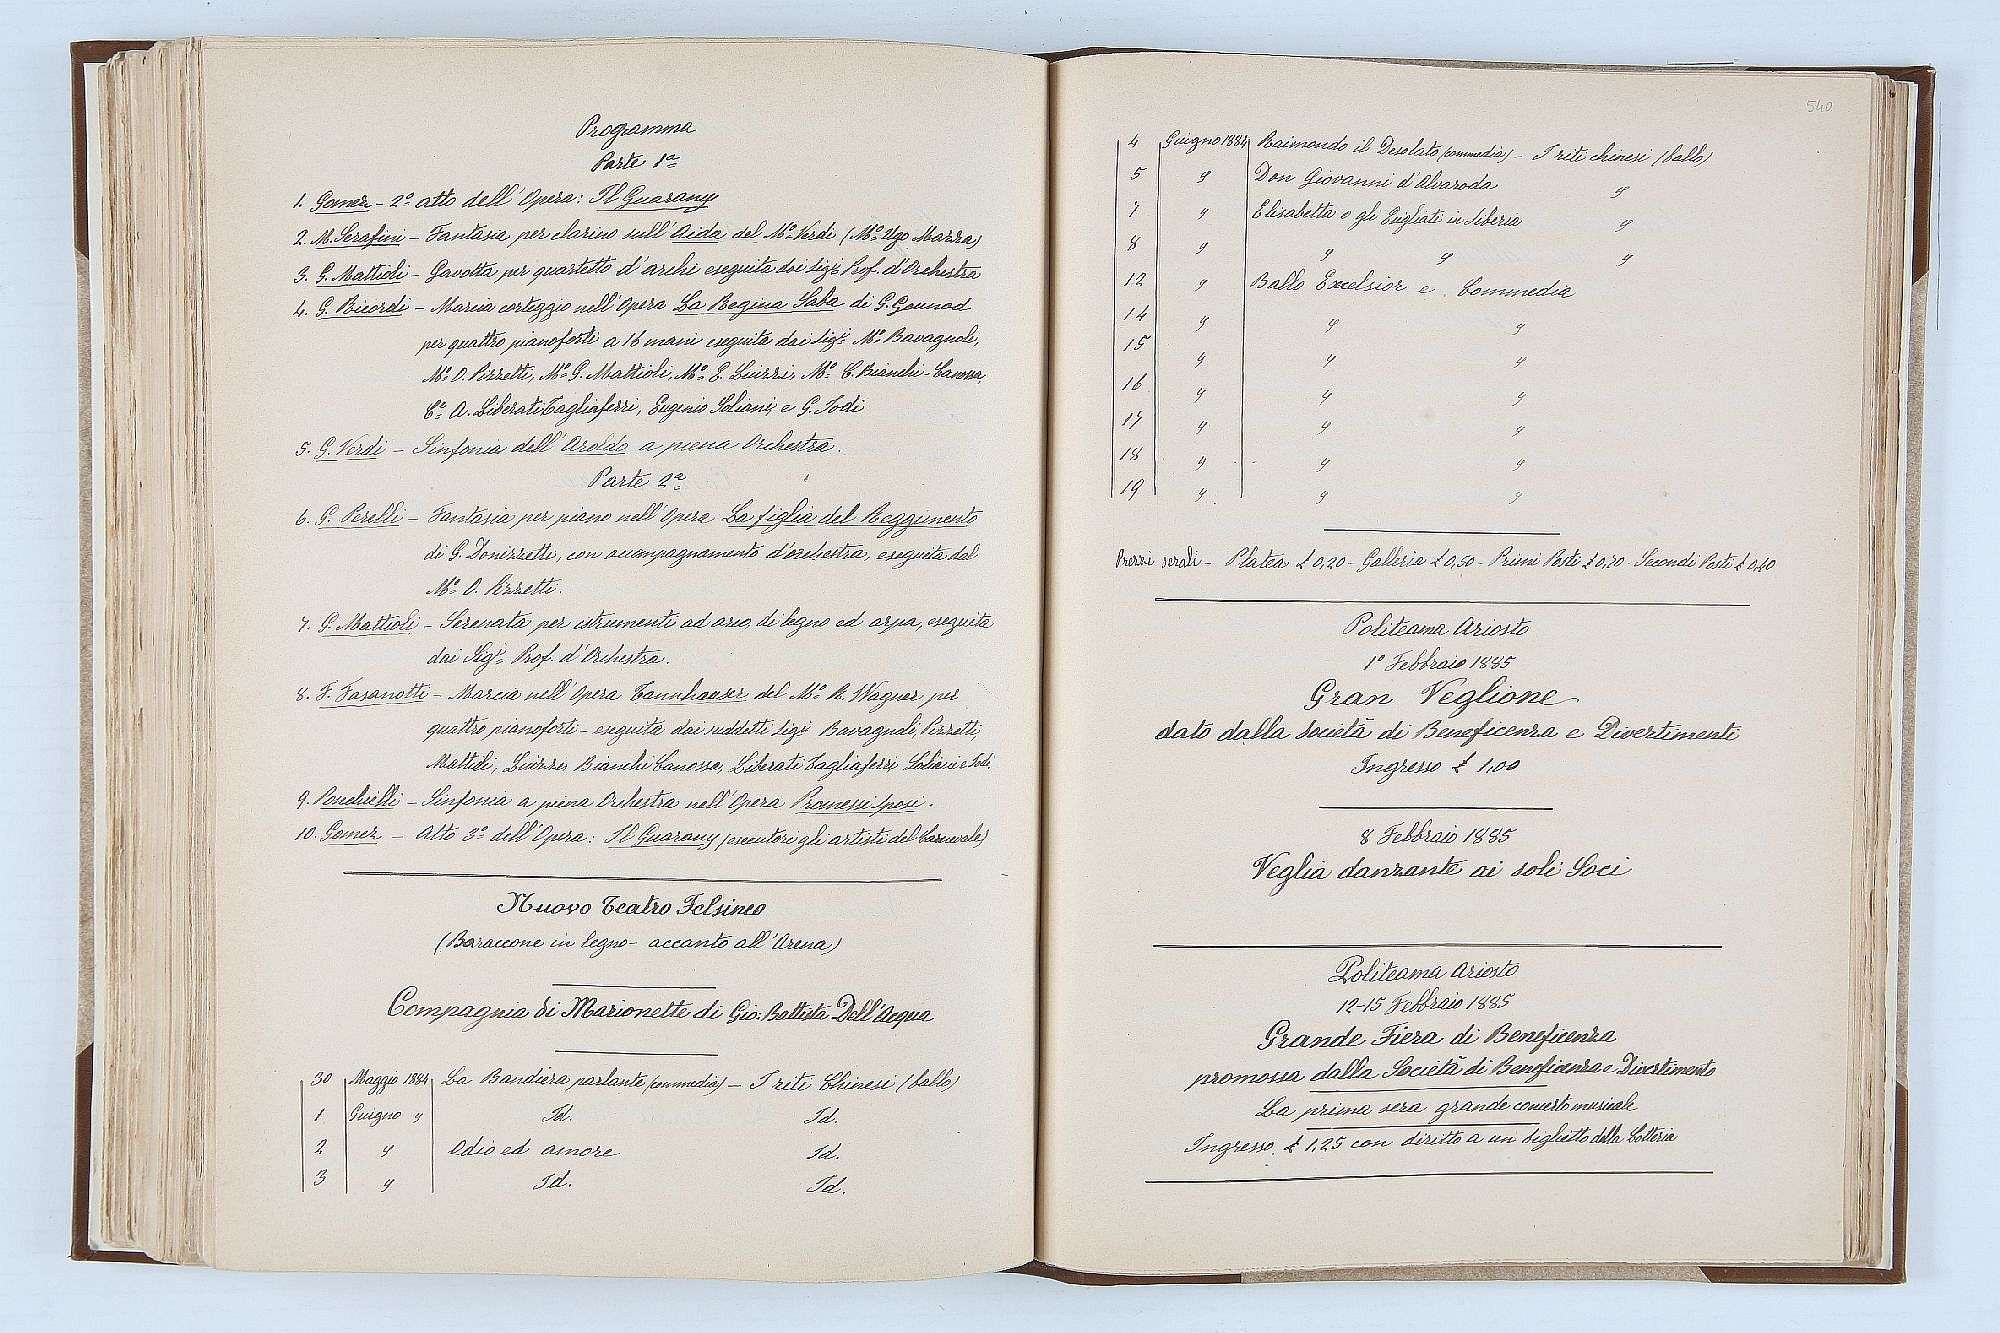 Programma
Parte 1ª
1. Gomez - 2º atto dell'Opera: Il Guarany
2. M. Serafini - Fantasia per clarino sull'Aida del Mº Verdi (Mº Ugo Mazza)
3. G. Mattioli - Gavotta per quartetto d'archi eseguita dai Sigi Prof. d'Orchestra
4. G. Ricordi - Marcia corteggio nell'Opera La Regina Saba di G. Gounod
per quattro pianoforti a 16 mani eseguita dai Sigi Mº Bavagnoli,
Mº O. Pizzetti, Mº G. Mattioli, Mº E. Liuzzi, Mº C. Bianchi-Canossa,
Cº A. Liberati Tagliaferri, Eugenio Soliani, e G. Jodi
5. G. Verdi - Sinfonia dell'Aroldo a piena Orchestra.
Parte 2ª
6. G. Perelli - Fantasia per piano nell'Opera La figlia del Reggimento
di G. Donizzetti, con accompagnamento d'orchestra, eseguita dal
Mº O. Pizzetti.
7. G. Mattioli - Serenata per istrumenti ad arco, di legno ed arpa, eseguita
dai Sigi Prof. d'Orchestra.
8. F. Fasanotti - Marcia nell'Opera Tannhauser del Mº R. Wagner per
quattro pianoforti - eseguita dai suddetti Sigi Bavagnoli, Pizzetti,
Mattioli, Liuzzi, Bianchi Canossa, Liberati Tagliaferri Soliani e Jodi.
9. Ponchielli - Sinfonia a piena Orchestra nell'Opera Promessi Sposi.
10. Gomez - Atto 3º dell'Opera: Il Guarany (esecutori gli artisti del Carnevale)
Nuovo Teatro Felsineo
(Baraccone in legno - accanto all'Arena)
Compagnia di Marionette di Gio. Battista Dell'Acqua
30 Maggio 1884 La Bandiera parlante (commedia) - I riti Chinesi (ballo)
1 Giugno " Id. Id.
2 " Odio ed amore Id.
3 " Id. Id.
540
4 Giugno 1884 Raimondo il Desolato (commedia) - I riti chinesi (ballo)
5 " Don Giovanni d'Alvaroda "
7 " Elisabetta o gli Esigliati in Siberia "
8 " " " "
12 " Ballo Excelsior e Commedia
14 " " "
15 " " "
16 " " "
17 " " "
18 " " "
19 " " "
Prezzi serali - Platea £ 0,20 - Galleria £ 0,50 - Primi Posti £ 0,70 Secondi Posti £ 0,40
Politeama Ariosto
1º Febbraio 1885
Gran Veglione
dato dalla Società di Beneficenza e Divertimenti
Ingresso £ 1,00
8 Febbraio 1885
Veglia danzante ai soli Soci
Politeama Ariosto
12-15 Febbraio 1885
Grande Fiera di Beneficenza
promossa dalla Società di Beneficenza e Divertimento
La prima sera grande concerto musicale
Ingresso £ 1,25 con diritto a un biglietto della Lotteria